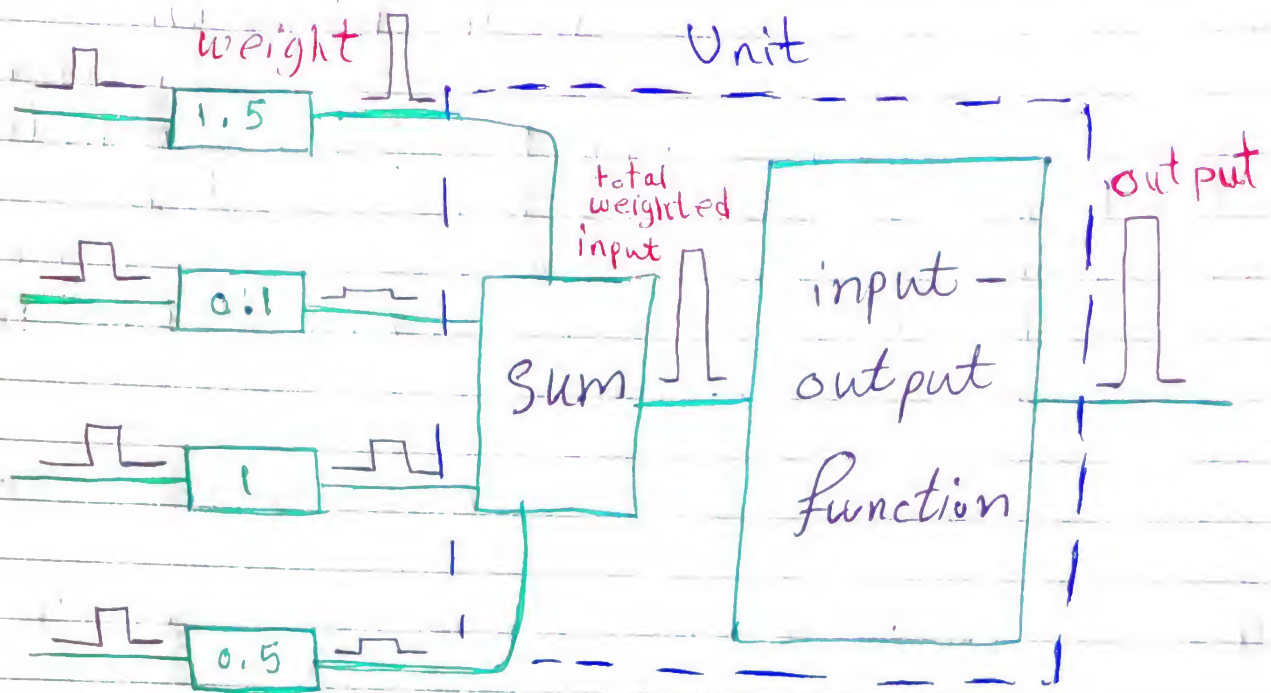 weight
Unit
1.5
total
weighted
input
output
0.1
Sum
input -
output
function
1
0.5